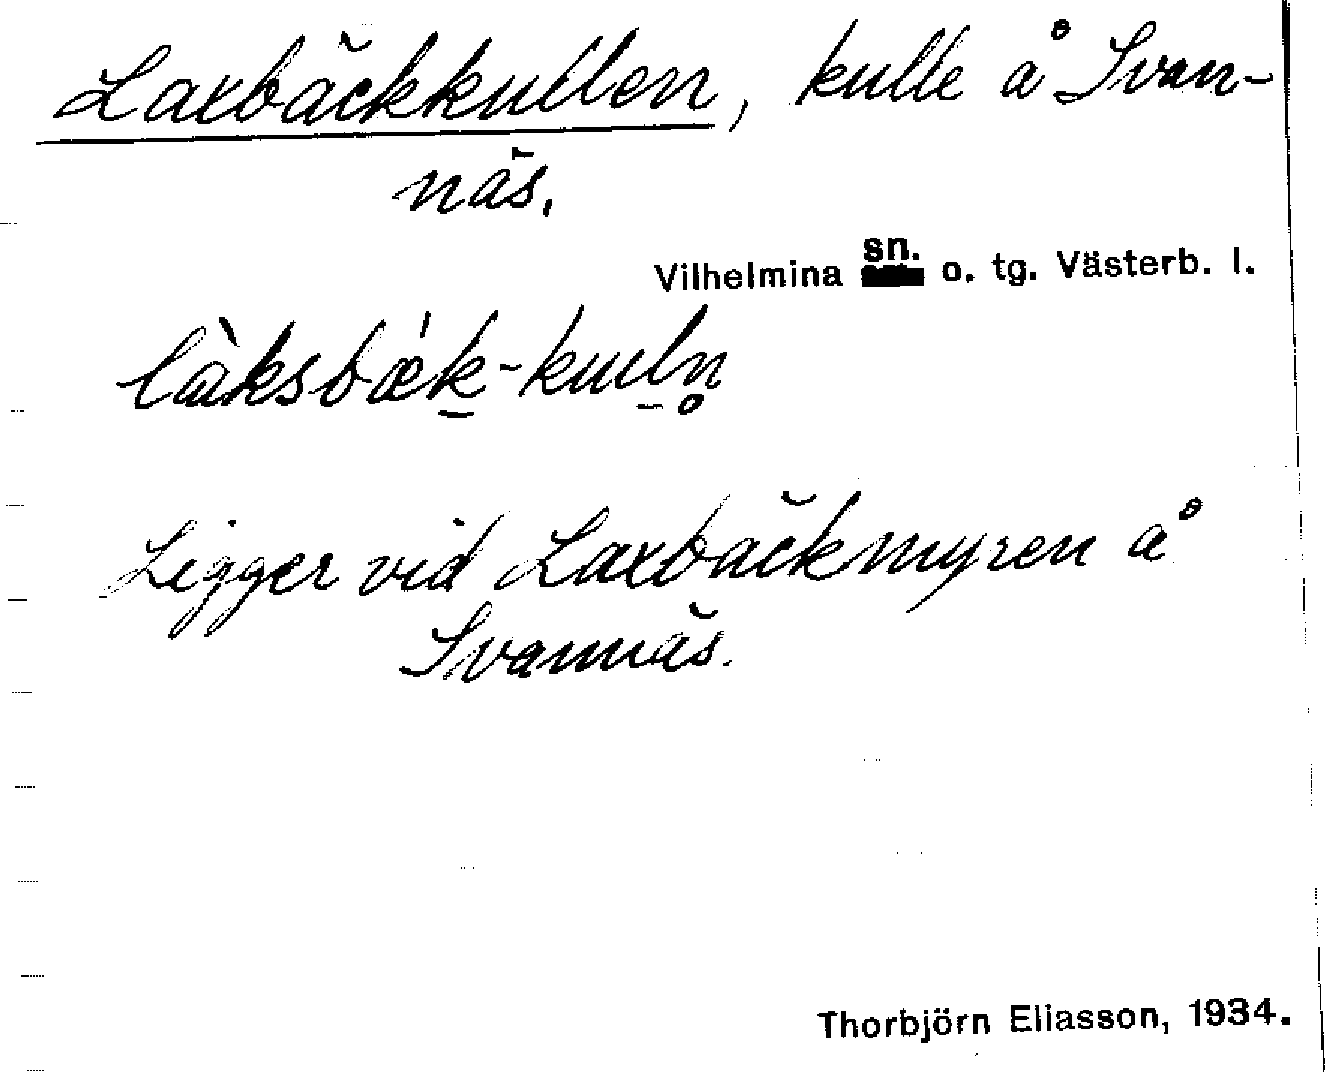 Laxbäckkullen, kulle å Svan-
näs.
Vilhelmina sn. o. tg. Västerb. l.
làksbǽk-kuln̥
Ligger vid Laxbäckmyren å
Svannäs.
Thorbjörn Eliasson, 1934.